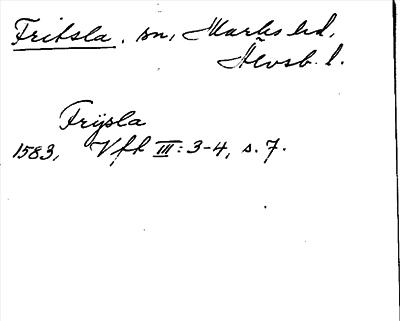 Fritsla. sn, Marks hd,
Älvsb. l.
Frijsla
1583, Vfh III: 3-4, s. 7.